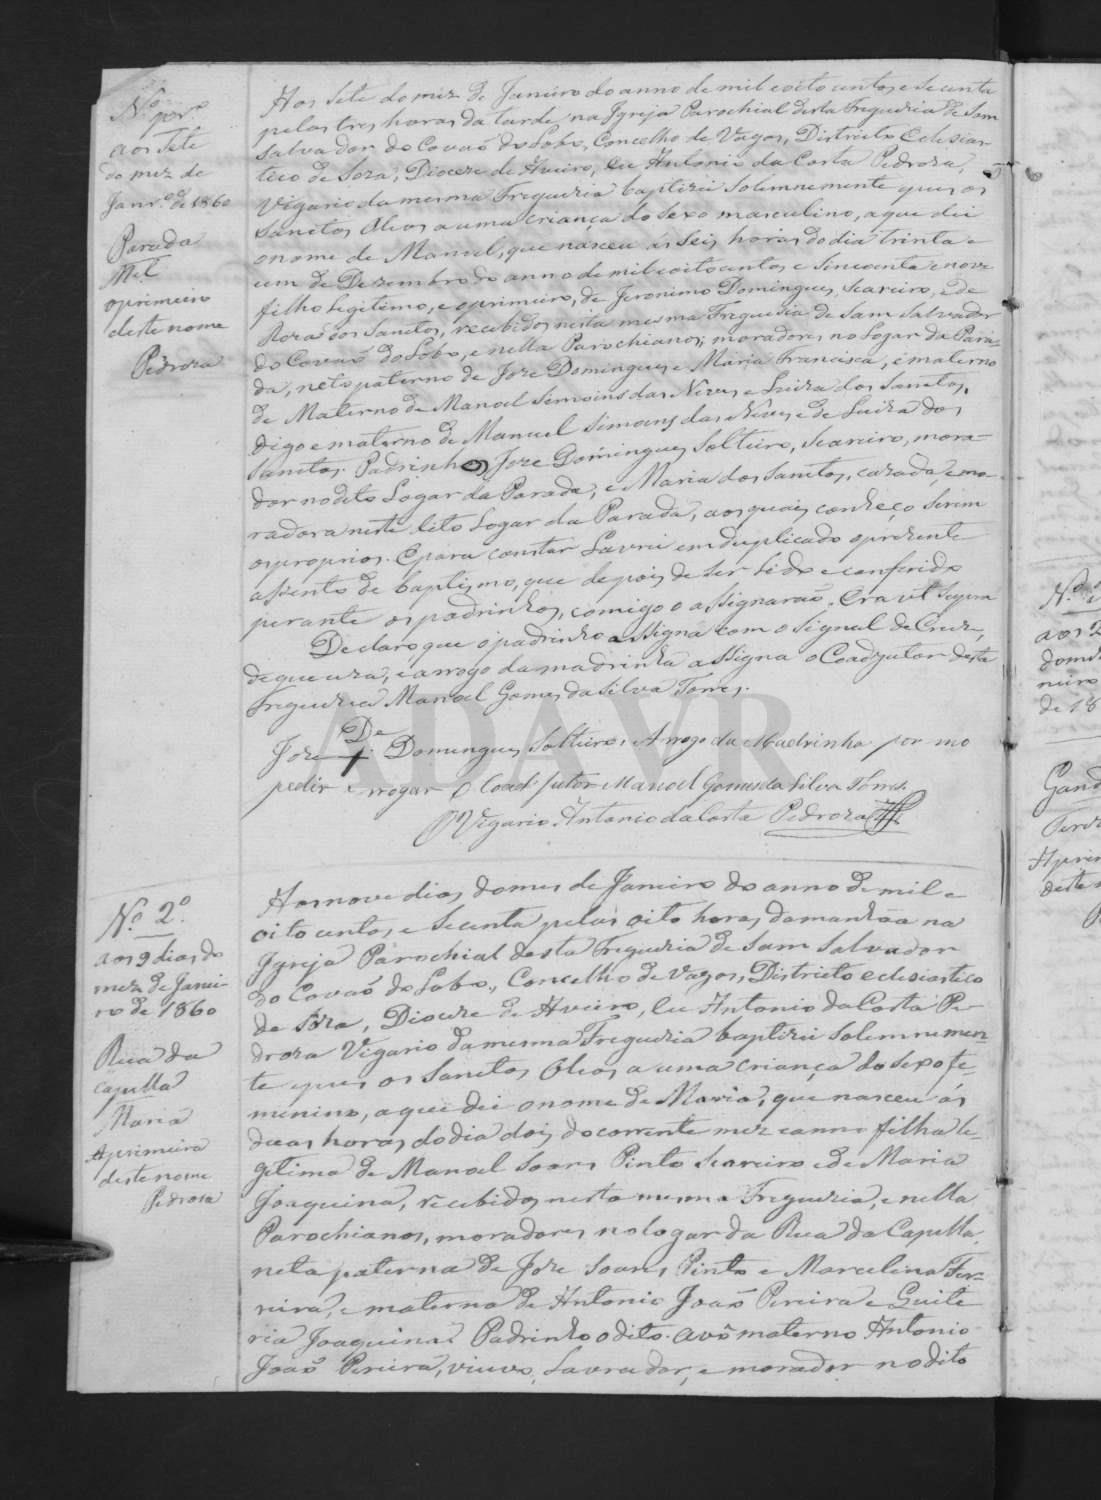 Nº prº
aos Sete
do mez de
Janrº de 1860
Parada
Mel
o primeiro
deste nome
Pedroza
Aos Sete do mez de Janeiro do anno de mil e oito centos e secenta
pelas tres horas da tarde, na Igreja Parochial desta Freguezia de Sam
Salvador do Covaõ do Lobo, Concelho de Vagos, Districto Eclesias-
tico de Soza, Diocese de Aveiro, Eu Antonio da Costa Pedroza,
Vigario da mesma Freguezia baptizei solemnemente, e puz os
Sanctos Oleos a uma criança do sexo masculino, a que dei
o nome de Manoel, que nasceu ás seis horas do dia trinta e
um de Dezembro do anno de mil e oitocentos e sincoenta e nove
filho legitimo, e o primeiro, de Jeronimo Domingues, Seareiro, e de
Roza dos Sanctos, recebidos nesta mesma Freguesia de Sam Salvador
do Covaõ do Lobo, e nella Parochianos, moradores no Logar da Para-
da, neto paterno de Joze Domingues e Maria Francisca, e materno
de Materno de Manoel Simoins das Neves e Luiza dos Sanctos,
Digo e materno de Manuel Simoens das Neves e de Luiza dos
Sanctos. Padrinhos, Joze Domingues, Solteiro, Seareiro, mora-
dor no dito Logar da Parada, e Maria dos Sanctos, cazada, e mo-
radora neste dito Logar da Parada, aos quaes conheço serem
os proprios. E para constar Lavrei em duplicado o prezente
assento de baptismo, que depois de ser lido e conferido
perante os padrinhos, comigo o assignaraõ. Era ut supra
Declaro que o padrinho assigna com o signal de Cruz,
de que uza, e a rogo da madrinha assigna o Coadjutor desta
Freguezia Manoel Gomes da Silva Torres.
De
Joze + Domingues Solteiro, A rogo da Madrinha por mo
pedir e rogar O Coadjutor Manoel Gomes da Silva Torres.
O Vigario Antonio da Costa Pedroza
Nº 2º
aos 9 dias do
mez de Janei-
ro de 1860
Rua da
Capella
Maria
A primeira
deste nome
Pedroza
Aos nove dias do mes de Janeiro do anno de mil e
oito centos e secenta pelas oito horas da manhãa na
Igreja Parochial desta Freguezia de Sam Salvador
do Covaõ do Lobo, Concelho de Vagos, Districto eclesiastico
de Soza, Diocese de Aveiro, Eu Antonio da Costa Pe-
droza Vigario da mesma Freguezia baptizei solemnemen-
te e puz os Sanctos Oleos a uma criança do sexo fe-
menino, a que dei o nome de Maria, que nasceu ás
duas horas do dia dois do corrente mez e anno filha le-
gitima de Manoel Soares Pinto Seareiro e de Maria
Joaquina, recebidos nesta mesma Freguezia, e nella
Parochianos, moradores no logar da Rua da Capella,
neta paterna de Joze Soares Pinto e Marcelina Fer-
reira, e materna de Antonio Joaõ Pereira e Quite
ria Joaquina. Padrinho o dito avô materno Antonio
Joaõ Pereira, viuvo, Lavrador, e morador no dito
ADAVR
Nº
aos 2
do mez
neiro
de 18
Gand
A prim
deste n